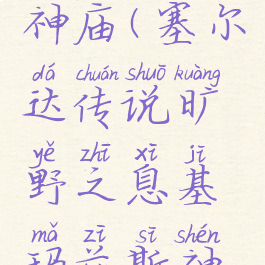 神庙(塞尔
dá chuán shuō kuàng
达传说旷
yě zhī xī jī
野之息基
mǎ zī sī shén
玛兹斯神